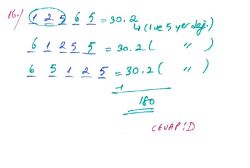 16-)
1 2 5 6 5 = 30.2 (1 ve 5 yer değ.)
6 1 2 5 5 = 30.2 ( " )
6 5 1 2 5 = 30.2 ( " )
180
CEVAP: D